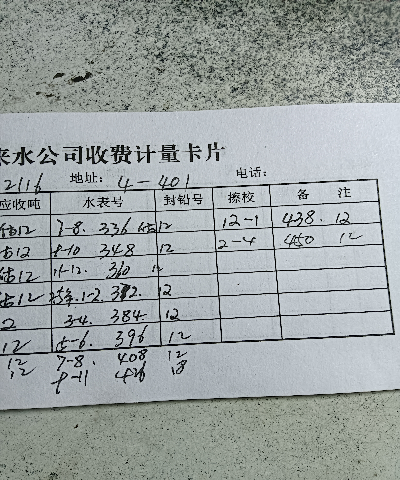 来水公司收费计量卡片
2116 地址: 4-401 电话:
应收吨 水表号 封铅号 擦校 备 注
估12 7-8. 336 估12 12-1 438. 12
估12 9-10 348 12 2-4 450 12
估12 11-12. 360 12
估12 25年.1-2. 372. 12
2 3-4. 384. 12
12 5-6. 396 12
12 7-8. 408 12
12 9-11 426 18